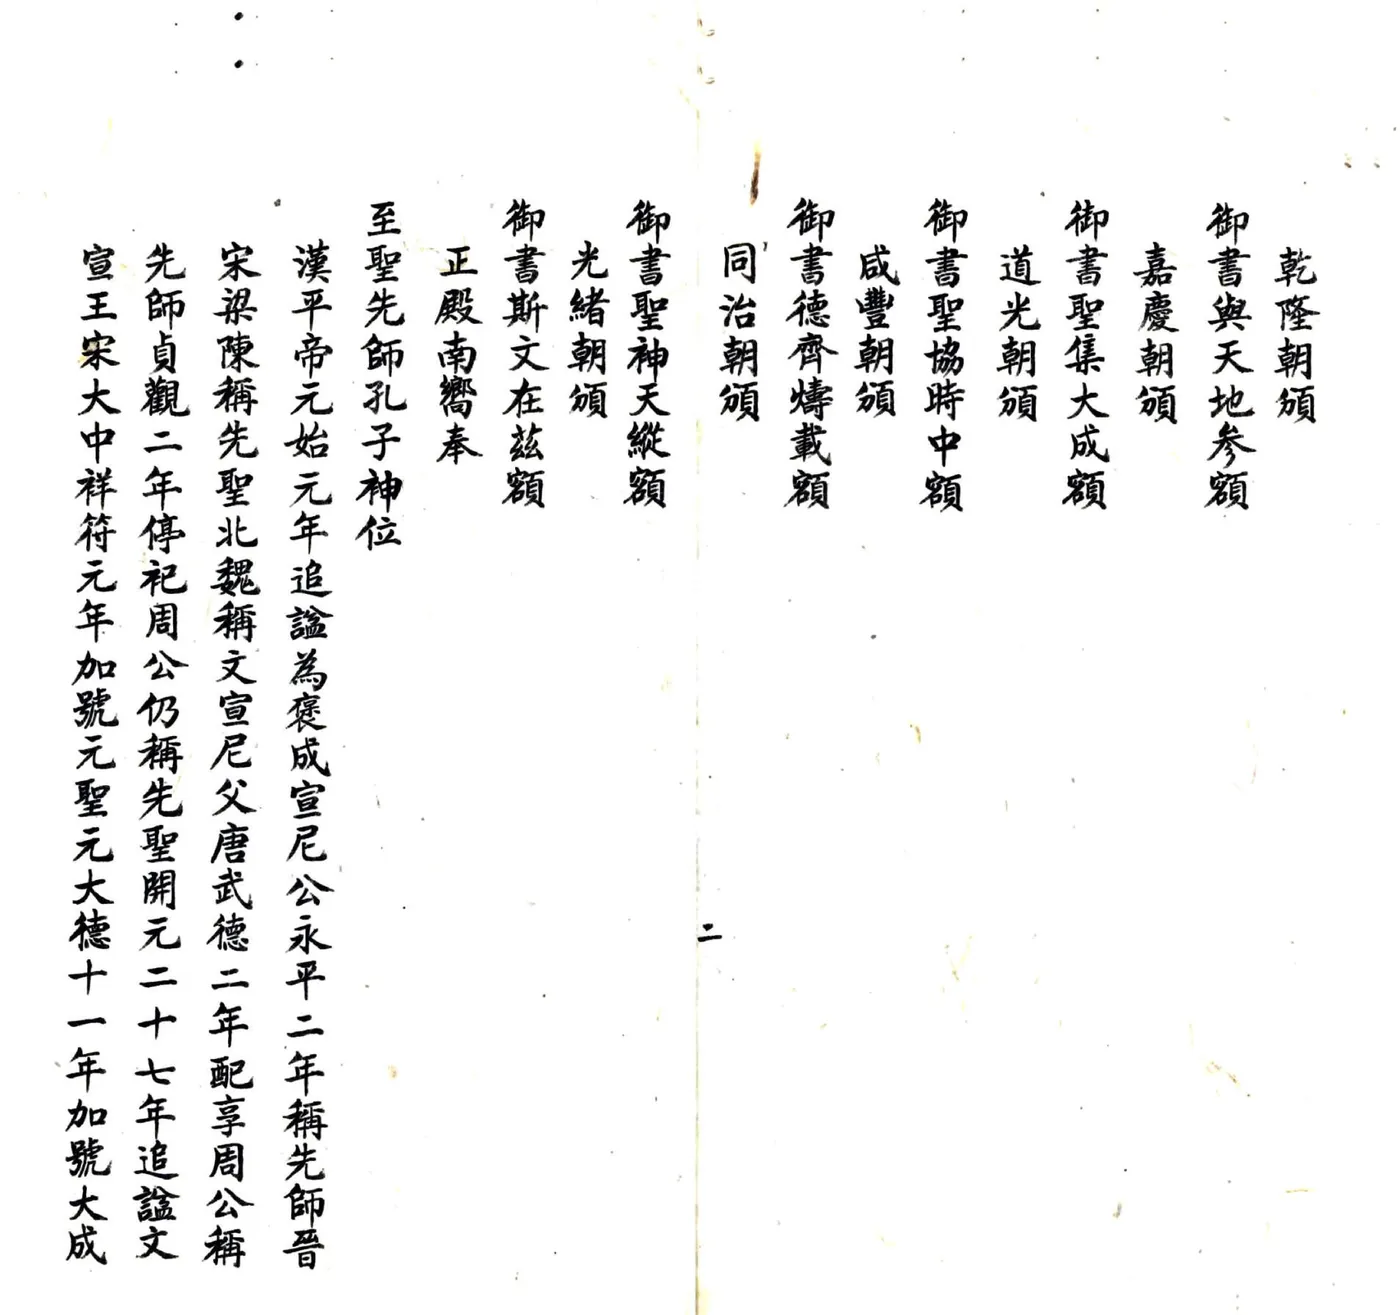 乾隆朝頒
御書與天地參額
嘉慶朝頒
御書聖集大成額
道光朝頒
御書聖協時中額
咸豐朝頒
御書德齊幬載額
同治朝頒
二
御書聖神天縱額
光緒朝頒
御書斯文在茲額
正殿南嚮奉
至聖先師孔子神位
漢平帝元始元年追謚為褒成宣尼公永平二年稱先師晉
宋梁陳稱先聖北魏稱文宣尼父唐武德二年配享周公稱
先師貞觀二年停祀周公仍稱先聖開元二十七年追謚文
宣王宋大中祥符元年加號元聖元大德十一年加號大成